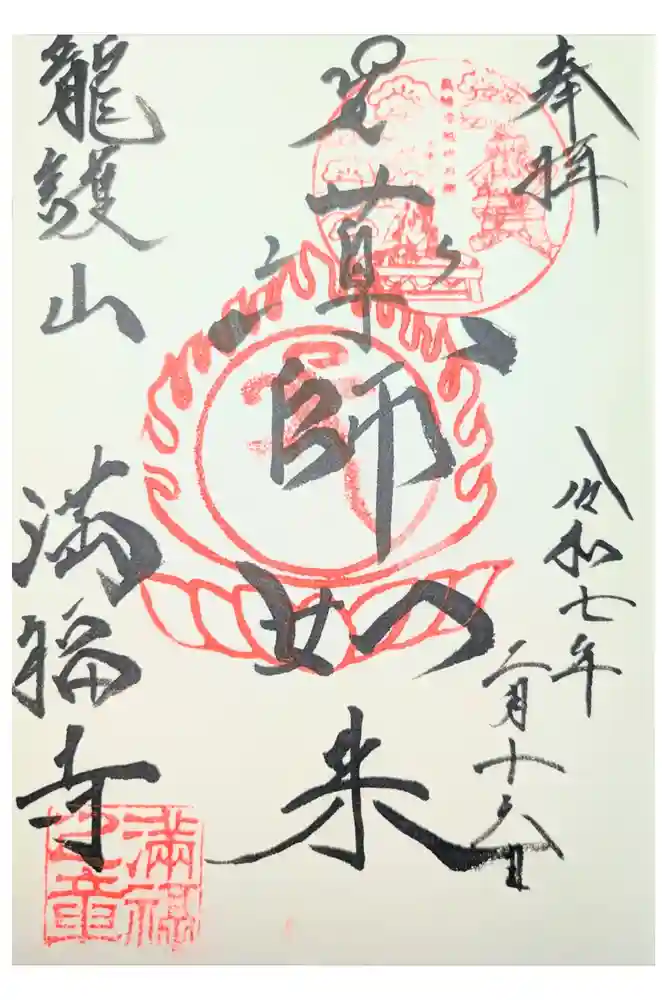 奉拝
令和七年
二月十六日
薬師如来
龍護山
満福寺
滿福
之章